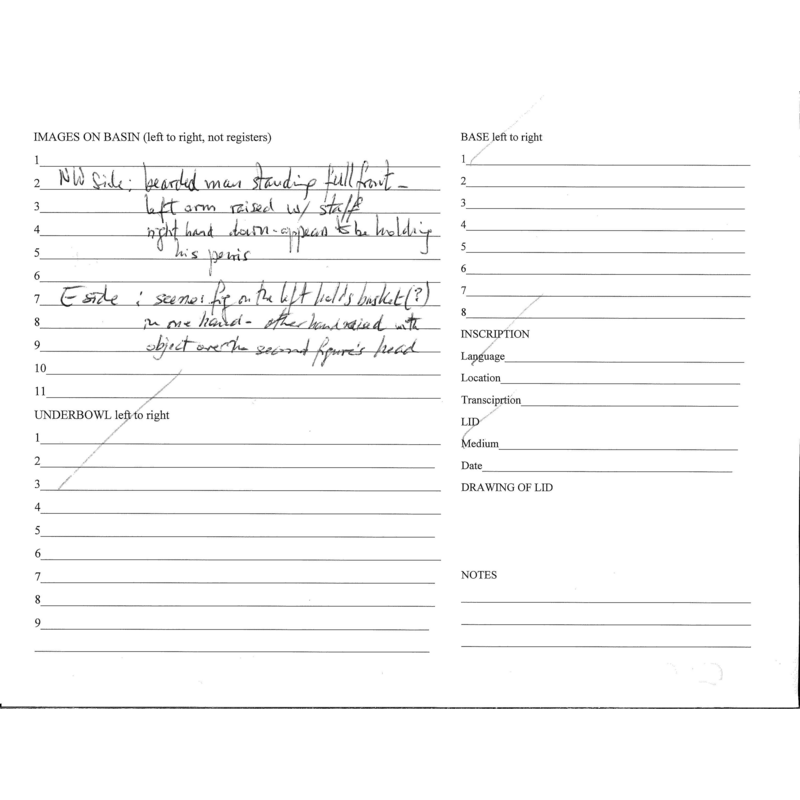 IMAGES ON BASIN (left to right, not registers)
1
2 NW Side: bearded man standing full front -
3 left arm raised w/ staff
4 right hand down - appears to be holding
5 his penis
6
7 E side : scene: fig on the left holds basket (?)
8 in one hand - other hand raised with
9 object over the second figure's head
10
11
UNDERBOWL left to right
1
2
3
4
5
6
7
8
9
BASE left to right
1
2
3
4
5
6
7
8
INSCRIPTION
Language
Location
Transciprtion
LID
Medium
Date
DRAWING OF LID
NOTES